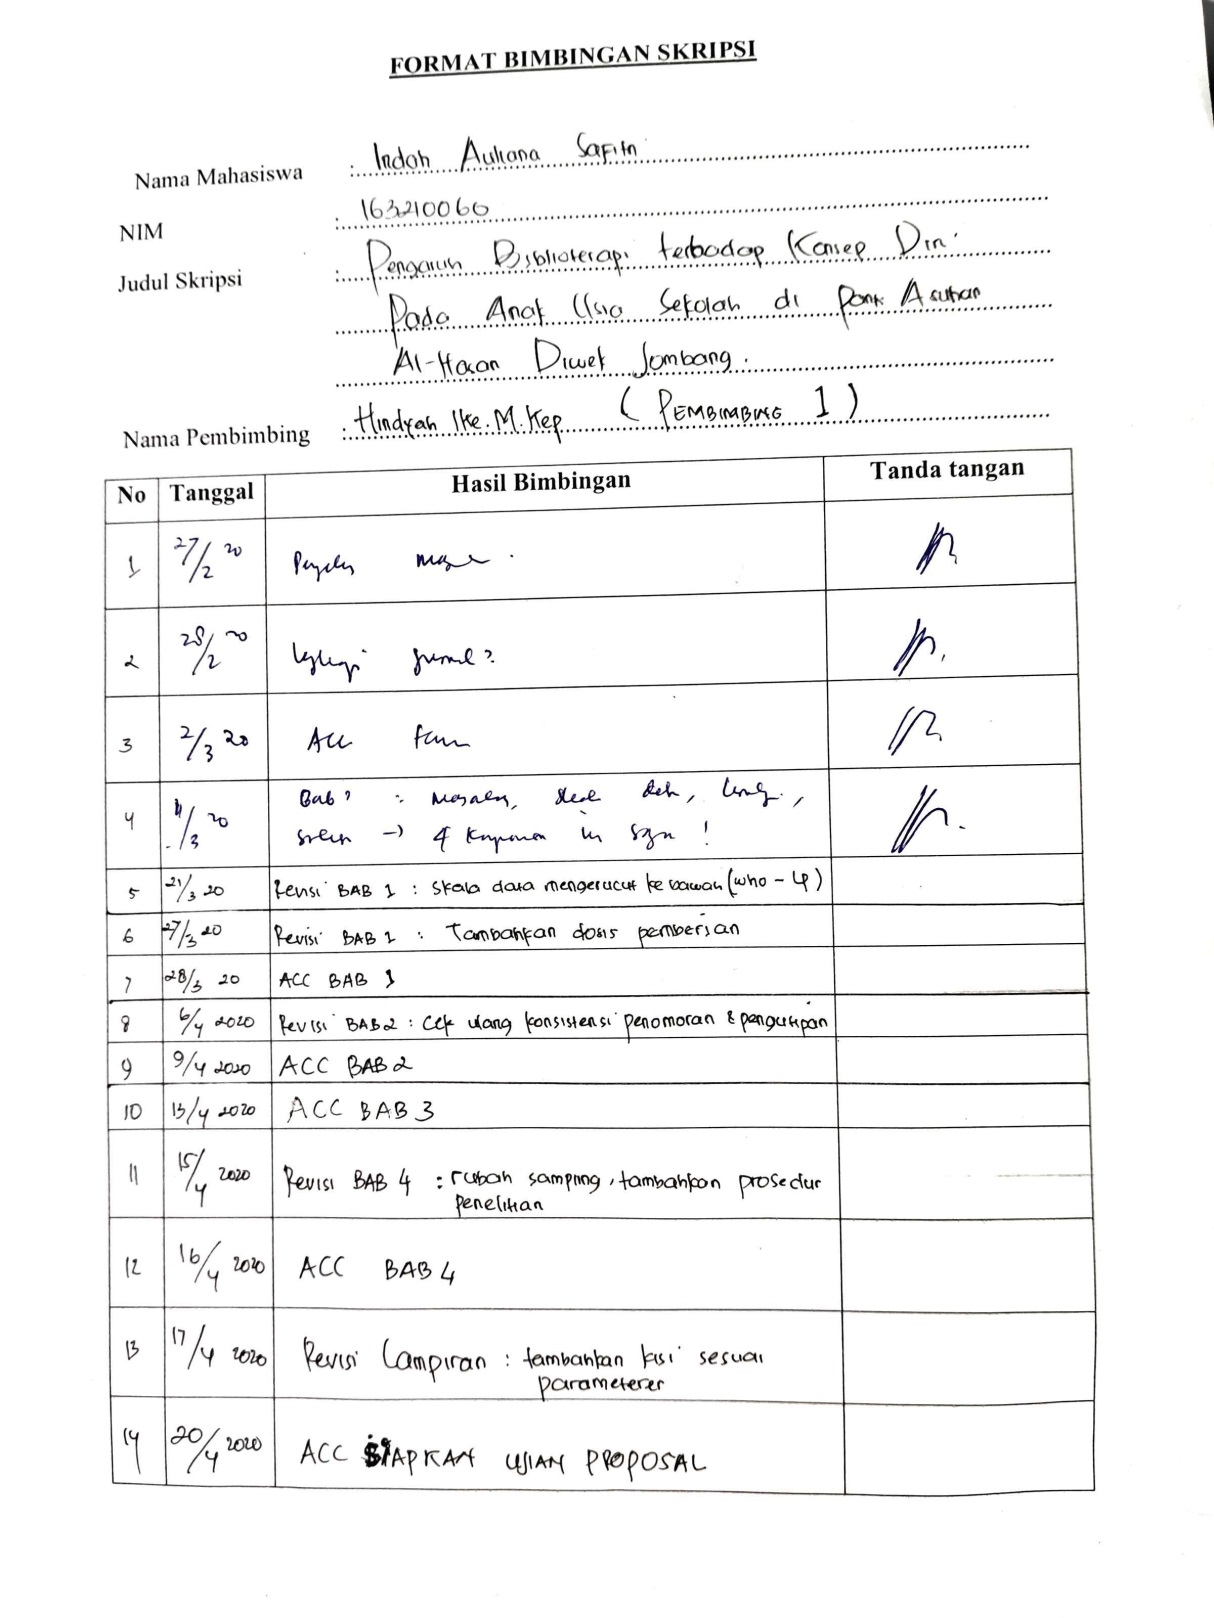 FORMAT BIMBINGAN SKRIPSI
Nama Mahasiswa : Indah Auliana Safitri
NIM : 163210066
Judul Skripsi : Pengaruh Biblioterapi terhadap Konsep Diri
Pada Anak Usia Sekolah di Panti Asuhan
Al-Hasan Diwek Jombang.
Nama Pembimbing : Hindyah Ike. M.Kep ( PEMBIMBING 1 )
No Tanggal Hasil Bimbingan Tanda tangan
1 27/2 20
2 28/2 20
3 2/3 20 Acc
4 /3 20 Bab 1 :
→ 4 !
5 21/3 20 Revisi BAB 1 : skala data mengerucut ke bawah (who - 4)
6 27/3 20 Revisi BAB 1 : Tambahkan dosis pemberian
7 28/3 20 ACC BAB 1
8 6/4 2020 Revisi BAB 2 : Cek ulang konsistensi penomoran & pengutipan
9 9/4 2020 ACC BAB 2
10 13/4 2020 ACC BAB 3
11 15/4 2020 Revisi BAB 4 : rubah sampling, tambahkan prosedur
penelitian
12 16/4 2020 ACC BAB 4
13 17/4 2020 Revisi Lampiran : tambahkan kisi sesuai
parameterer
14 20/4 2020 ACC SIAPKAN UJIAN PROPOSAL